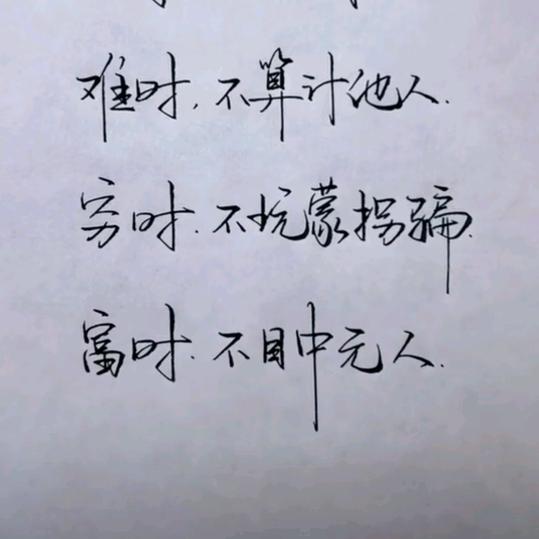 难时,不算计他人.
穷时.不坑蒙拐骗.
富时.不目中无人.